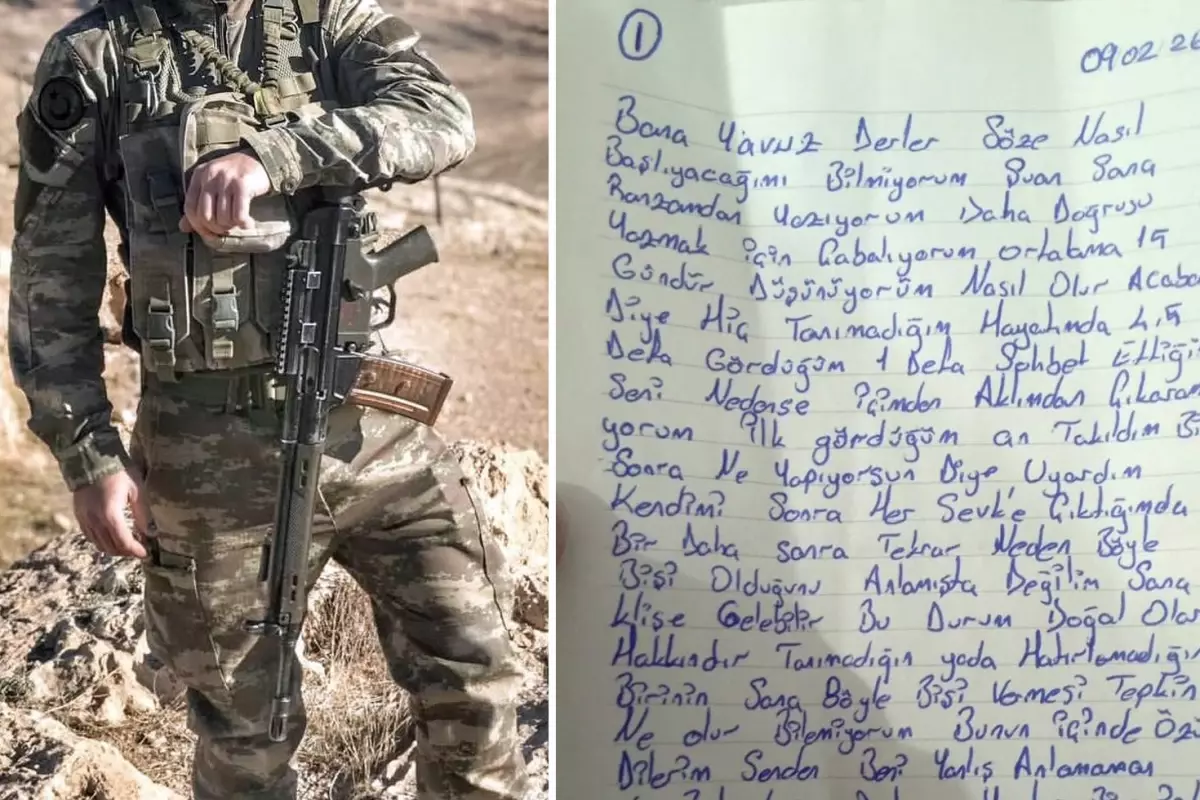 1
09 02 26
Bana Yavuz Derler Söze Nasıl
Başlıyacağımı Bilmiyorum Şuan Sana
Ranzamdan Yazıyorum Daha Doğrusu
Yazmak için Çabalıyorum ortalama 15
Gündür Düşünüyorum Nasıl Olur Acaba
Diye Hiç Tanımadığım Hayatımda 4,5
Defa Gördüğüm 1 Defa Sohbet Ettiğim
Seni Nedense içimden Aklımdan Çıkara
yorum ilk gördüğüm an Takıldım
Sonra Ne Yapıyorsun Diye Uyardım
Kendimi Sonra Her Sevk'e Çıktığımda
Bir Daha sonra Tekrar Neden Böyle
Bişi Olduğunu Anlamışta Değilim Sana
klişe Gelebilir Bu Durum Doğal Olar
Hakkındır Tanımadığın yada Hatırlamadığın
Birinin Sana Böyle Bişi Vermesi Tepkin
Ne olur Bilemiyorum Bunun içinde Özü
Dilerim Senden Beni Yanlış Anlamaman